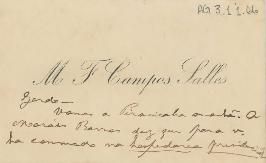 PG 3.11.66
M F Campos Salles
Gordo —
Vamos a Piracicaba amanhã. O
Moraes Barros diz que para v.
ha commodo na hospedaria